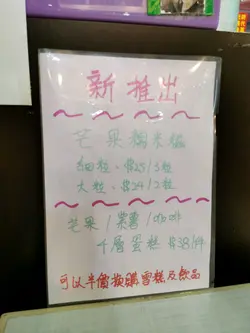 新推出
芒果糯米糍
細粒 - $25/3粒
大粒 - $24/2粒
芒果/紫薯/咖啡
4層蛋糕 $38/件
可以半價換購雪糕及飲品